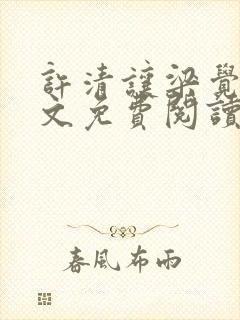 許清讓梁覺
文免費閱讀
春風布雨